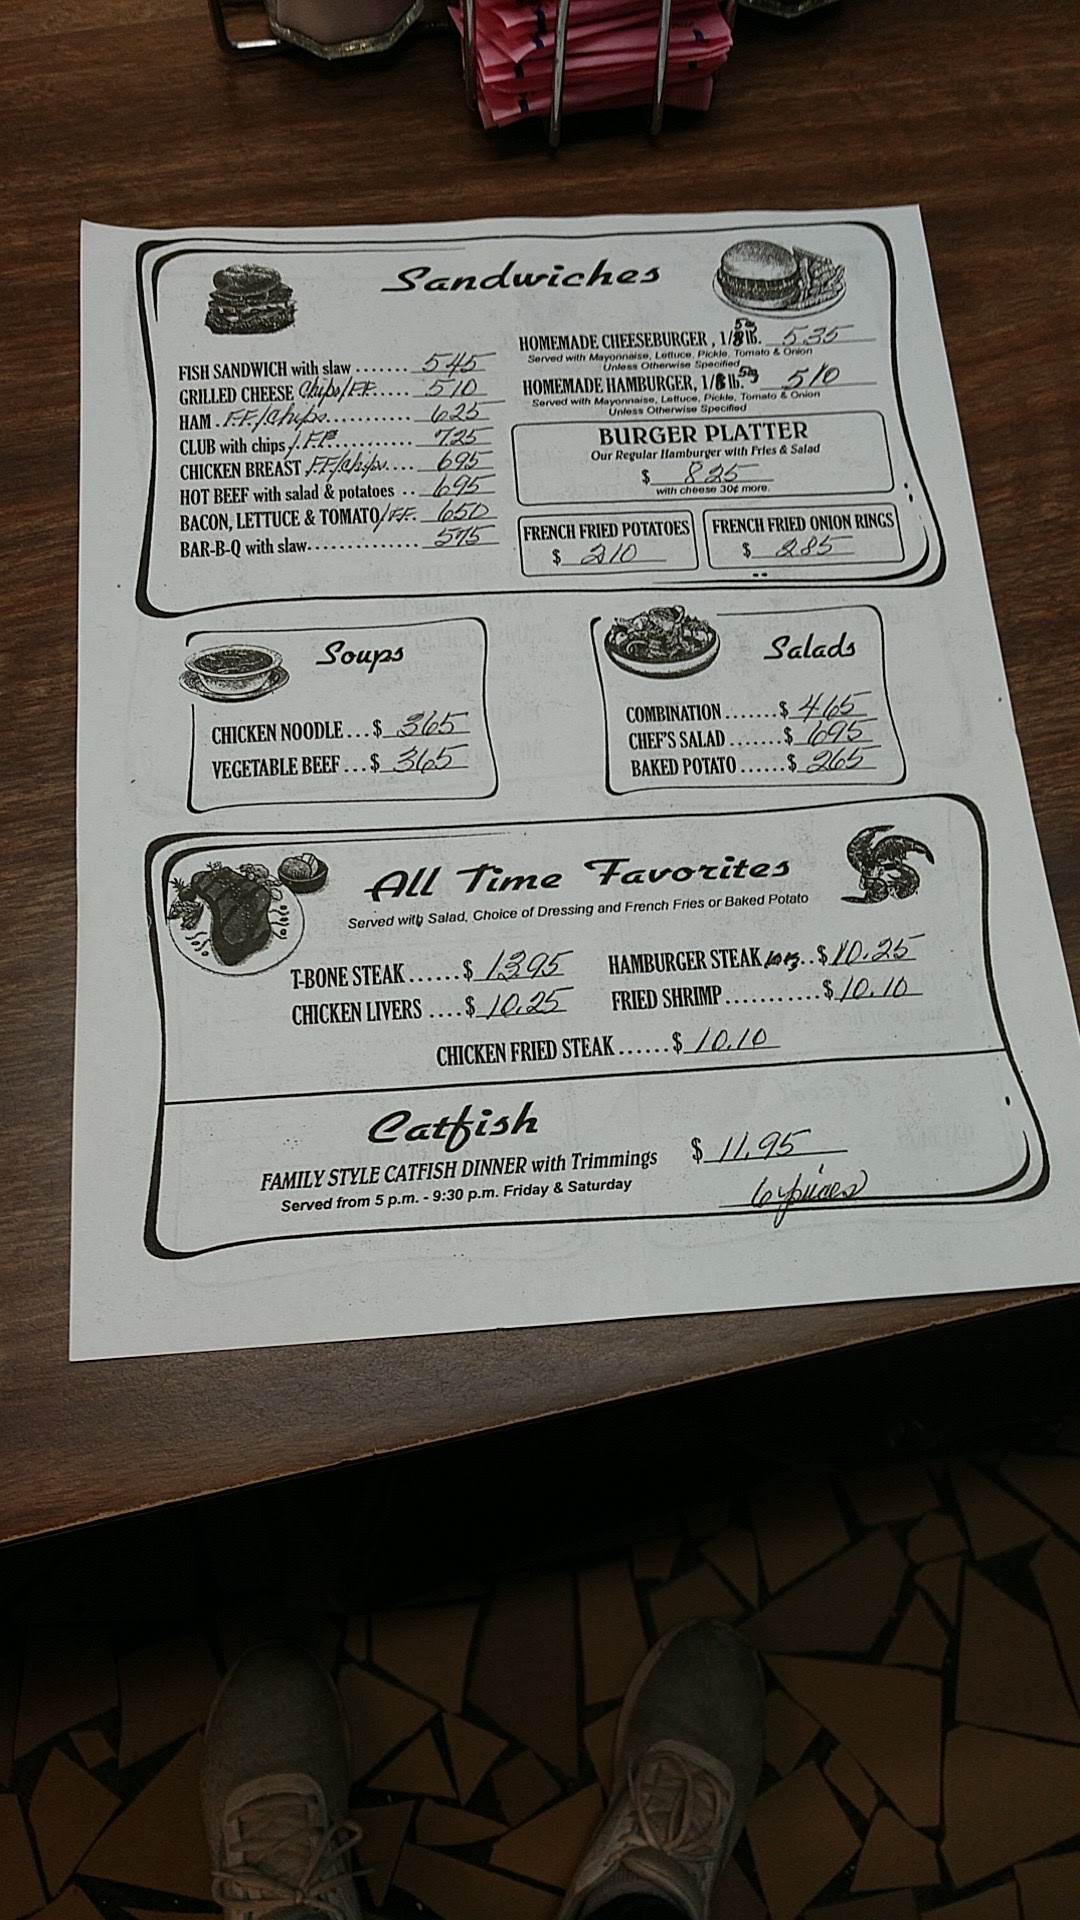 Sandwiches
FISH SANDWICH with slaw ....... 545
GRILLED CHEESE Chips/F.F. .... 510
HAM . F.F./Chips........... 625
CLUB with chips /.F.F.......... 725
CHICKEN BREAST F.F/Chips.... 695
HOT BEEF with salad & potatoes .. 695
BACON, LETTUCE & TOMATO/F.F. 650
BAR-B-Q with slaw.............. 575
HOMEMADE CHEESEBURGER , 1/8 lb. 5oz 535
Served with Mayonnaise, Lettuce, Pickle, Tomato & Onion
Unless Otherwise Specified
HOMEMADE HAMBURGER, 1/8 lb. 5oz 510
Served with Mayonnaise, Lettuce, Pickle, Tomato & Onion
Unless Otherwise Specified
BURGER PLATTER
Our Regular Hamburger with Fries & Salad
$ 825
with cheese 30¢ more.
FRENCH FRIED POTATOES
$ 210
FRENCH FRIED ONION RINGS
$ 285
Soups
CHICKEN NOODLE ... $ 365
VEGETABLE BEEF ... $ 365
Salads
COMBINATION .......$ 465
CHEF'S SALAD .......$ 695
BAKED POTATO ......$ 265
All Time Favorites
Served with Salad, Choice of Dressing and French Fries or Baked Potato
T-BONE STEAK ......$ 1395
CHICKEN LIVERS ....$ 10.25
HAMBURGER STEAK 10oz..$ 10.25
FRIED SHRIMP...........$ 10.10
CHICKEN FRIED STEAK ......$ 10.10
Catfish
FAMILY STYLE CATFISH DINNER with Trimmings $ 11.95
Served from 5 p.m. - 9:30 p.m. Friday & Saturday
6 pieces